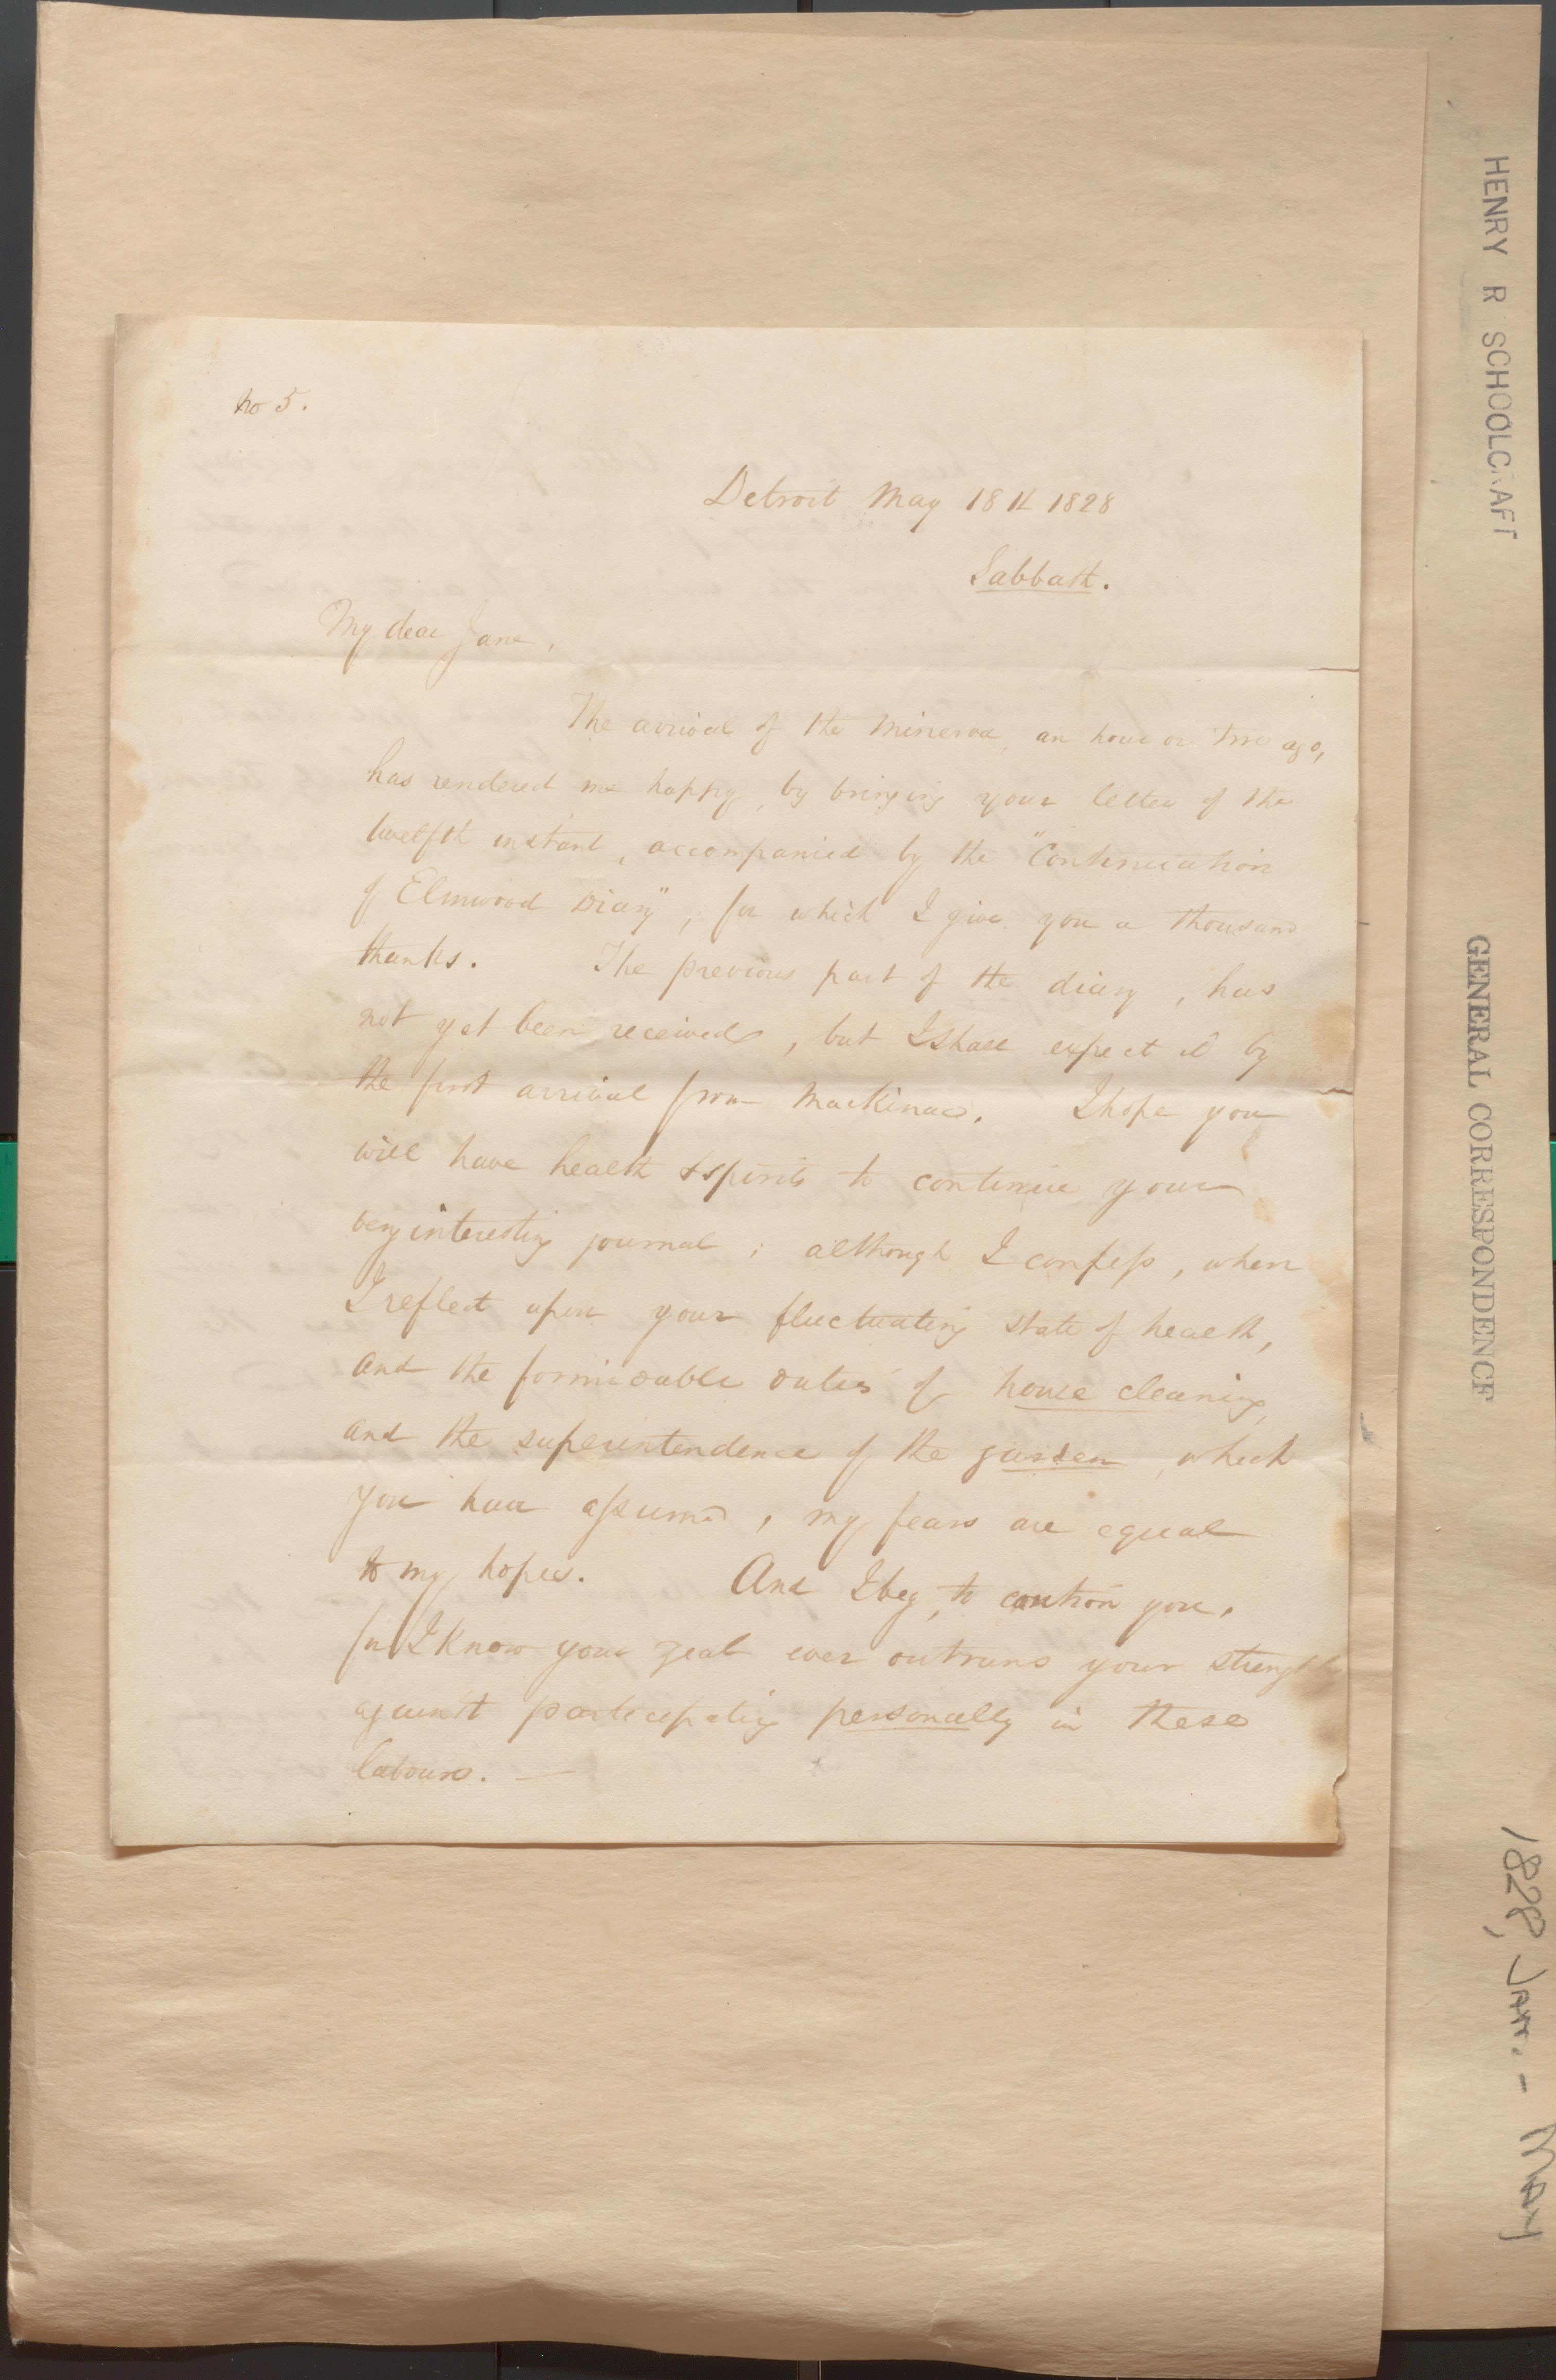 No 5.
Detroit May 18th 1828
Sabbath.
My dear Jane,
The arrival of the Minerva, an hour or two ago,
has rendered me happy, by bringing your letter of the
twelfth instant, accompanied by the "Continuation
of Elmwood Diary", for which I give you a thousand
thanks. The previous part of the diary, has
not yet been received, but I shall expect it by
the first arrival from Mackinac. I hope you
will have health & spirits to continue your
very interesting journal; although I confess, when
I reflect upon your fluctuating state of health,
and the formidable duties of house cleaning,
and the superintendence of the garden, which
you have assumed, my fears are equal
to my hopes. And I beg, to caution you,
for I know your zeal ever outruns your strength
against participating personally in these
labours. —
HENRY R SCHOOLCRAFT
GENERAL CORRESPONDENCE
1828, JAN. - MAY